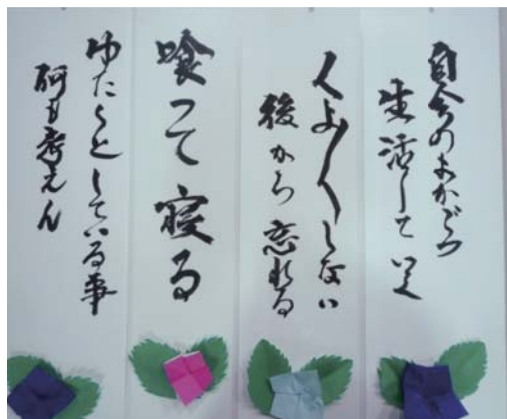 自分のよかごつ
生活していく
くよ〳〵しない
後から忘れる
喰って寝る
ゆたくとしている事
何も考えん